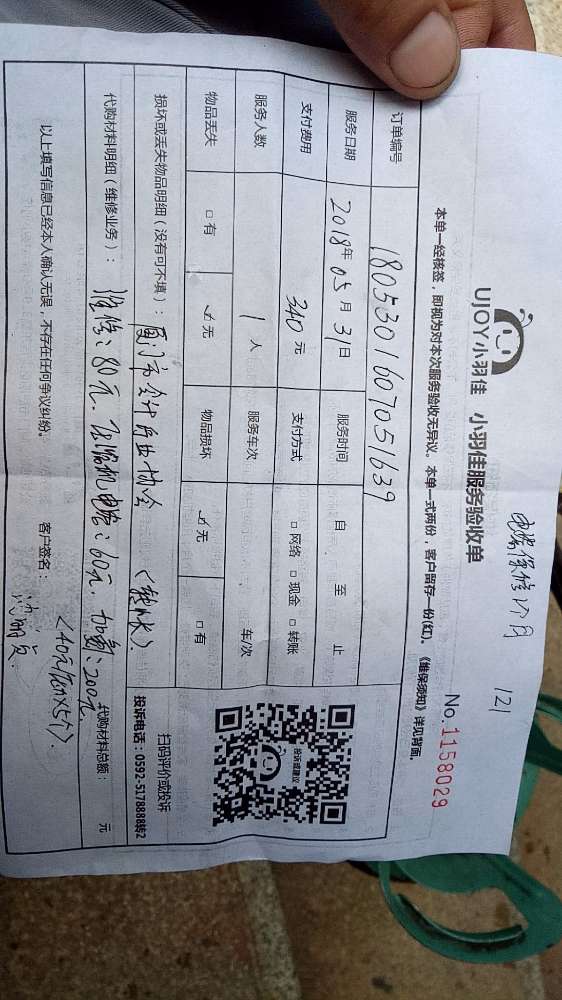 电容保修1个月
121
UJOY小羽佳 小羽佳服务验收单
No.1158029
本单一经核签，即视为对本次服务验收无异议。本单一式两份，客户留存一份(红)。《维保须知》详见背面。
订单编号 1805301607051639
服务日期 2018年05月31日 服务时间 自 至 止
支付费用 340元 支付方式 □网络 □现金 □转账
服务人数 1人 服务车次 车/次
物品丢失 □有 ☑无 物品损坏 ☑无 □有
投诉或建议
扫码评价或投诉
投诉电话：0592-5178888转2
损坏或丢失物品明细（没有可不填）： 厦门市会计行业协会 （转账）
代购材料明细（维修业务）： 维修：80元. 压缩机电容：60元. 加氟：200元.
（40元/压力×5个）.
代购材料总额： 元
以上填写信息已经本人确认无误，不存在任何争议纠纷。 客户签名：